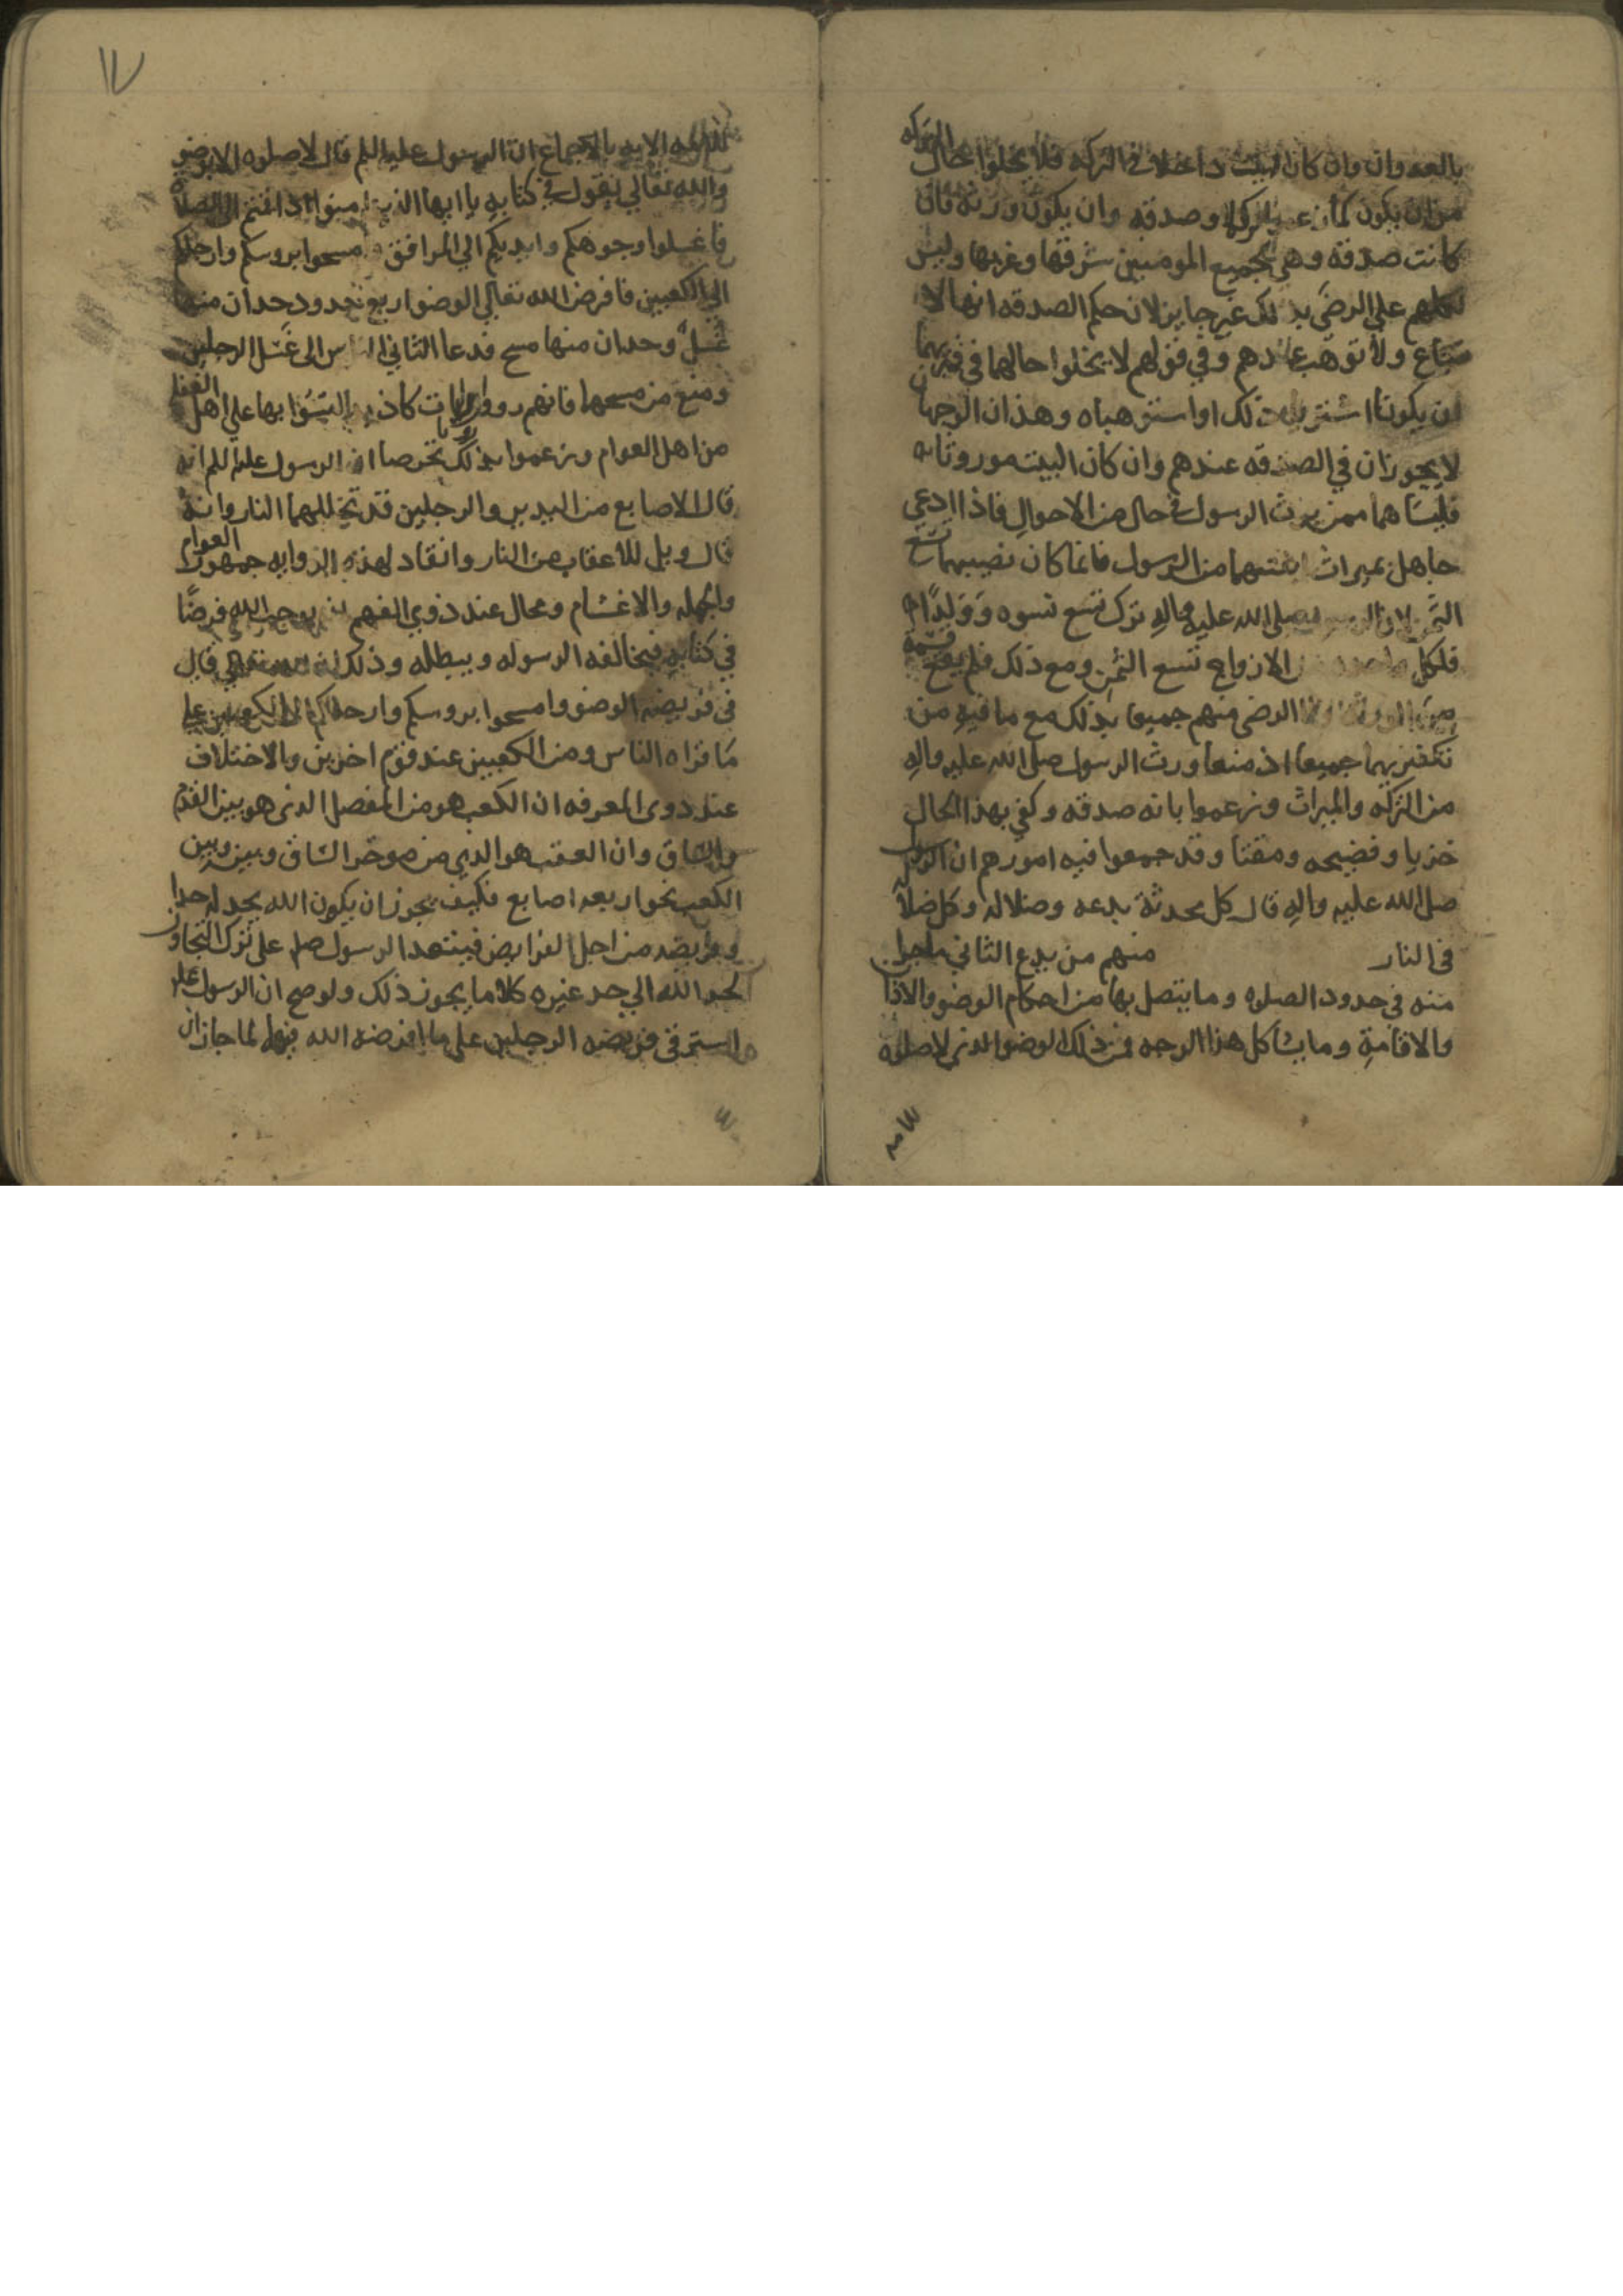 بالعدوان وان كان البيت داخلا في التركه فلا يخلوا حال التركه
من ان يكون كما زعموا تركها وصدقه وان يكون ورثه فان
كانت صدقة وهي لجميع المومنين شرقها وغربها وليس
كلهم علي الرضي بذلك غير جايز لان حكم الصدقه انها لا
تباع ولا توهب عندهم وفي قولهم لا يخلوا حالهما في قبريهما
ان يكونا اشتريا ذلك او استوهباه وهذان الوجهان
لا يجوزان في الصدقه عندهم وان كان البيت موروثا به
فليسا هما ممن يرث الرسول في حال من الاحوال فاذا ادعي
جاهل بميراث ابنتيهما من الرسول فانما كان نصيبهما تسع
الثمن لان الرسول صلى الله عليه واله ترك تسع نسوه وولدا
فلكل واحده من الازواج تسع الثمن ومع ذلك فلم يقع قسمة
من الورثة ولا الرضي منهم جميعا بذلك مع ما فيه من
تكفيرهما جميعا اذ منعا ورث الرسول صلى الله عليه واله
من التركه والميراث وزعموا بانه صدقه وكفي بهذا الحال
خزيا وفضيحه ومقتا وقد جمعوا فيه امورهم ان الرسول
صلى الله عليه واله قال كل محدثة بدعه وضلاله وكل ضلالة
في النار منهم من بدع الثاني ما جرا
منه في حدود الصلوه وما يتصل بها من احكام الوضو والاذان
والاقامة وما يشاكل هذا الوجه فمن ذلك الوضو الذي لا صلوه
١٧
الا به بالاجماع ان الرسول عليه السلم قال لا صلوه الا بوضو
والله تعالي يقول في كتابه يا ايها الذين امنوا اذا قمتم الى الصلاة
فاغسلوا وجوهكم وايديكم الي المرافق وامسحوا بروسكم وارجلكم
الي الكعبين فافرض الله تعالي الوضو اربع حدود حدان منها
غسل وحدان منها مسح فدعا الثاني الناس الى غسل الرجلين
ومنع من مسحهما فانهم رووا روايات كاذبه التبسوا بها علي اهل
من اهل العوام وزعموا بذلك تخرصا ان الرسول عليه السلم انه
قال الاصابع من اليدين والرجلين قد تخللهما النار وانه
قال ويل للاعقاب من النار وانقاد لهذه الروايه جمهور العوام
والجهله والاغشام ومحال عند ذوي الفهم ان يوجب الله فرضا
في كتابه فيخالفه الرسوله ويبطله وذلك ان الله تعالي قال
في فريضه الوضو وامسحوا بروسكم وارجلكم الى الكعبين علي
ما قراه الناس ومن الكعبين عند قوم اخرين والاختلاف
عند ذوى المعرفه ان الكعب هو من المفصل الذي هو بين القدم
والساق وان العقب هو الذي من موخر الساق وبينه وبين
الكعب نحو اربعه اصابع فكيف يجوز ان يكون الله يحد له حدا
وفريضه من اجل الفرايض فيتعدا الرسول صلم على ترك التجاوز
لحد الله الي حد غيره كلا ما يجوز ذلك ولو صح ان الرسول عليه
استمر في فريضه الرجلين على ما افرضه الله فيهما لما جاز ان